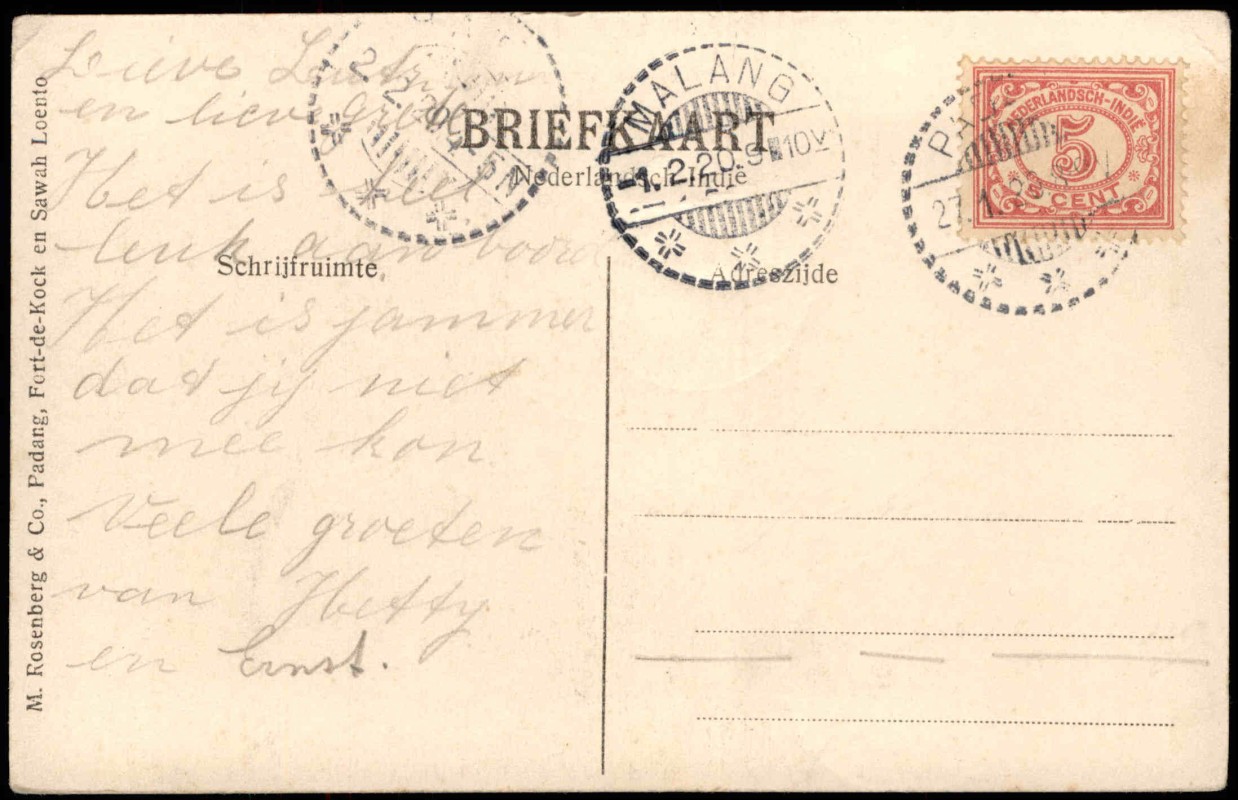 M. Rosenberg & Co., Padang, Fort-de-Kock en Sawah Loento
BRIEFKAART
Nederlandsch-Indië
Schrijfruimte
Adreszijde
Lieve
en lieve
Het is heel
leuk aan boord
Het is jammer
dat jij niet
mee kon
Veele groeten
van Hetty
en Ernst.
MALANG
1.2.20.9 10V
27.1.
NEDERLANDSCH-INDIË
5
CENT